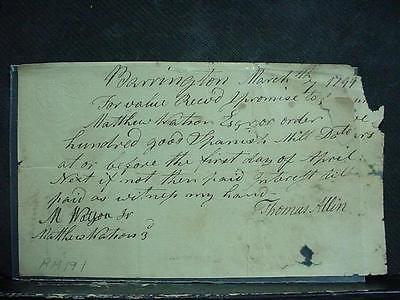 Barrington March th 7 1799
For value Recvd I promise to
Matthew Watson Esqr or order
hundred good Spanish Mill'd Dollers
at or before the first day of April
Next if not then paid Interest till
paid as witness my hand
Thomas Allin
M Watson Jr
Matthew Watson 3d